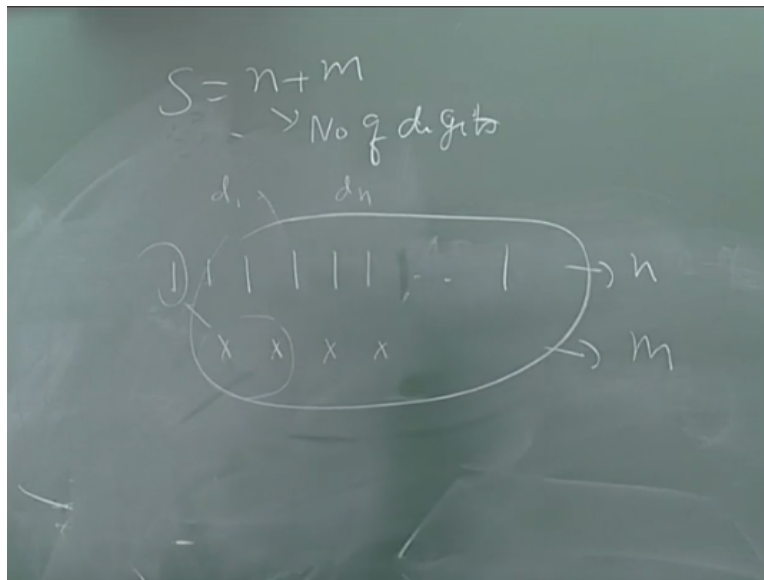 S = n + m
→ No of digits
d₁ dn
1) 1 | | | | | ... | → n
x x x x → m